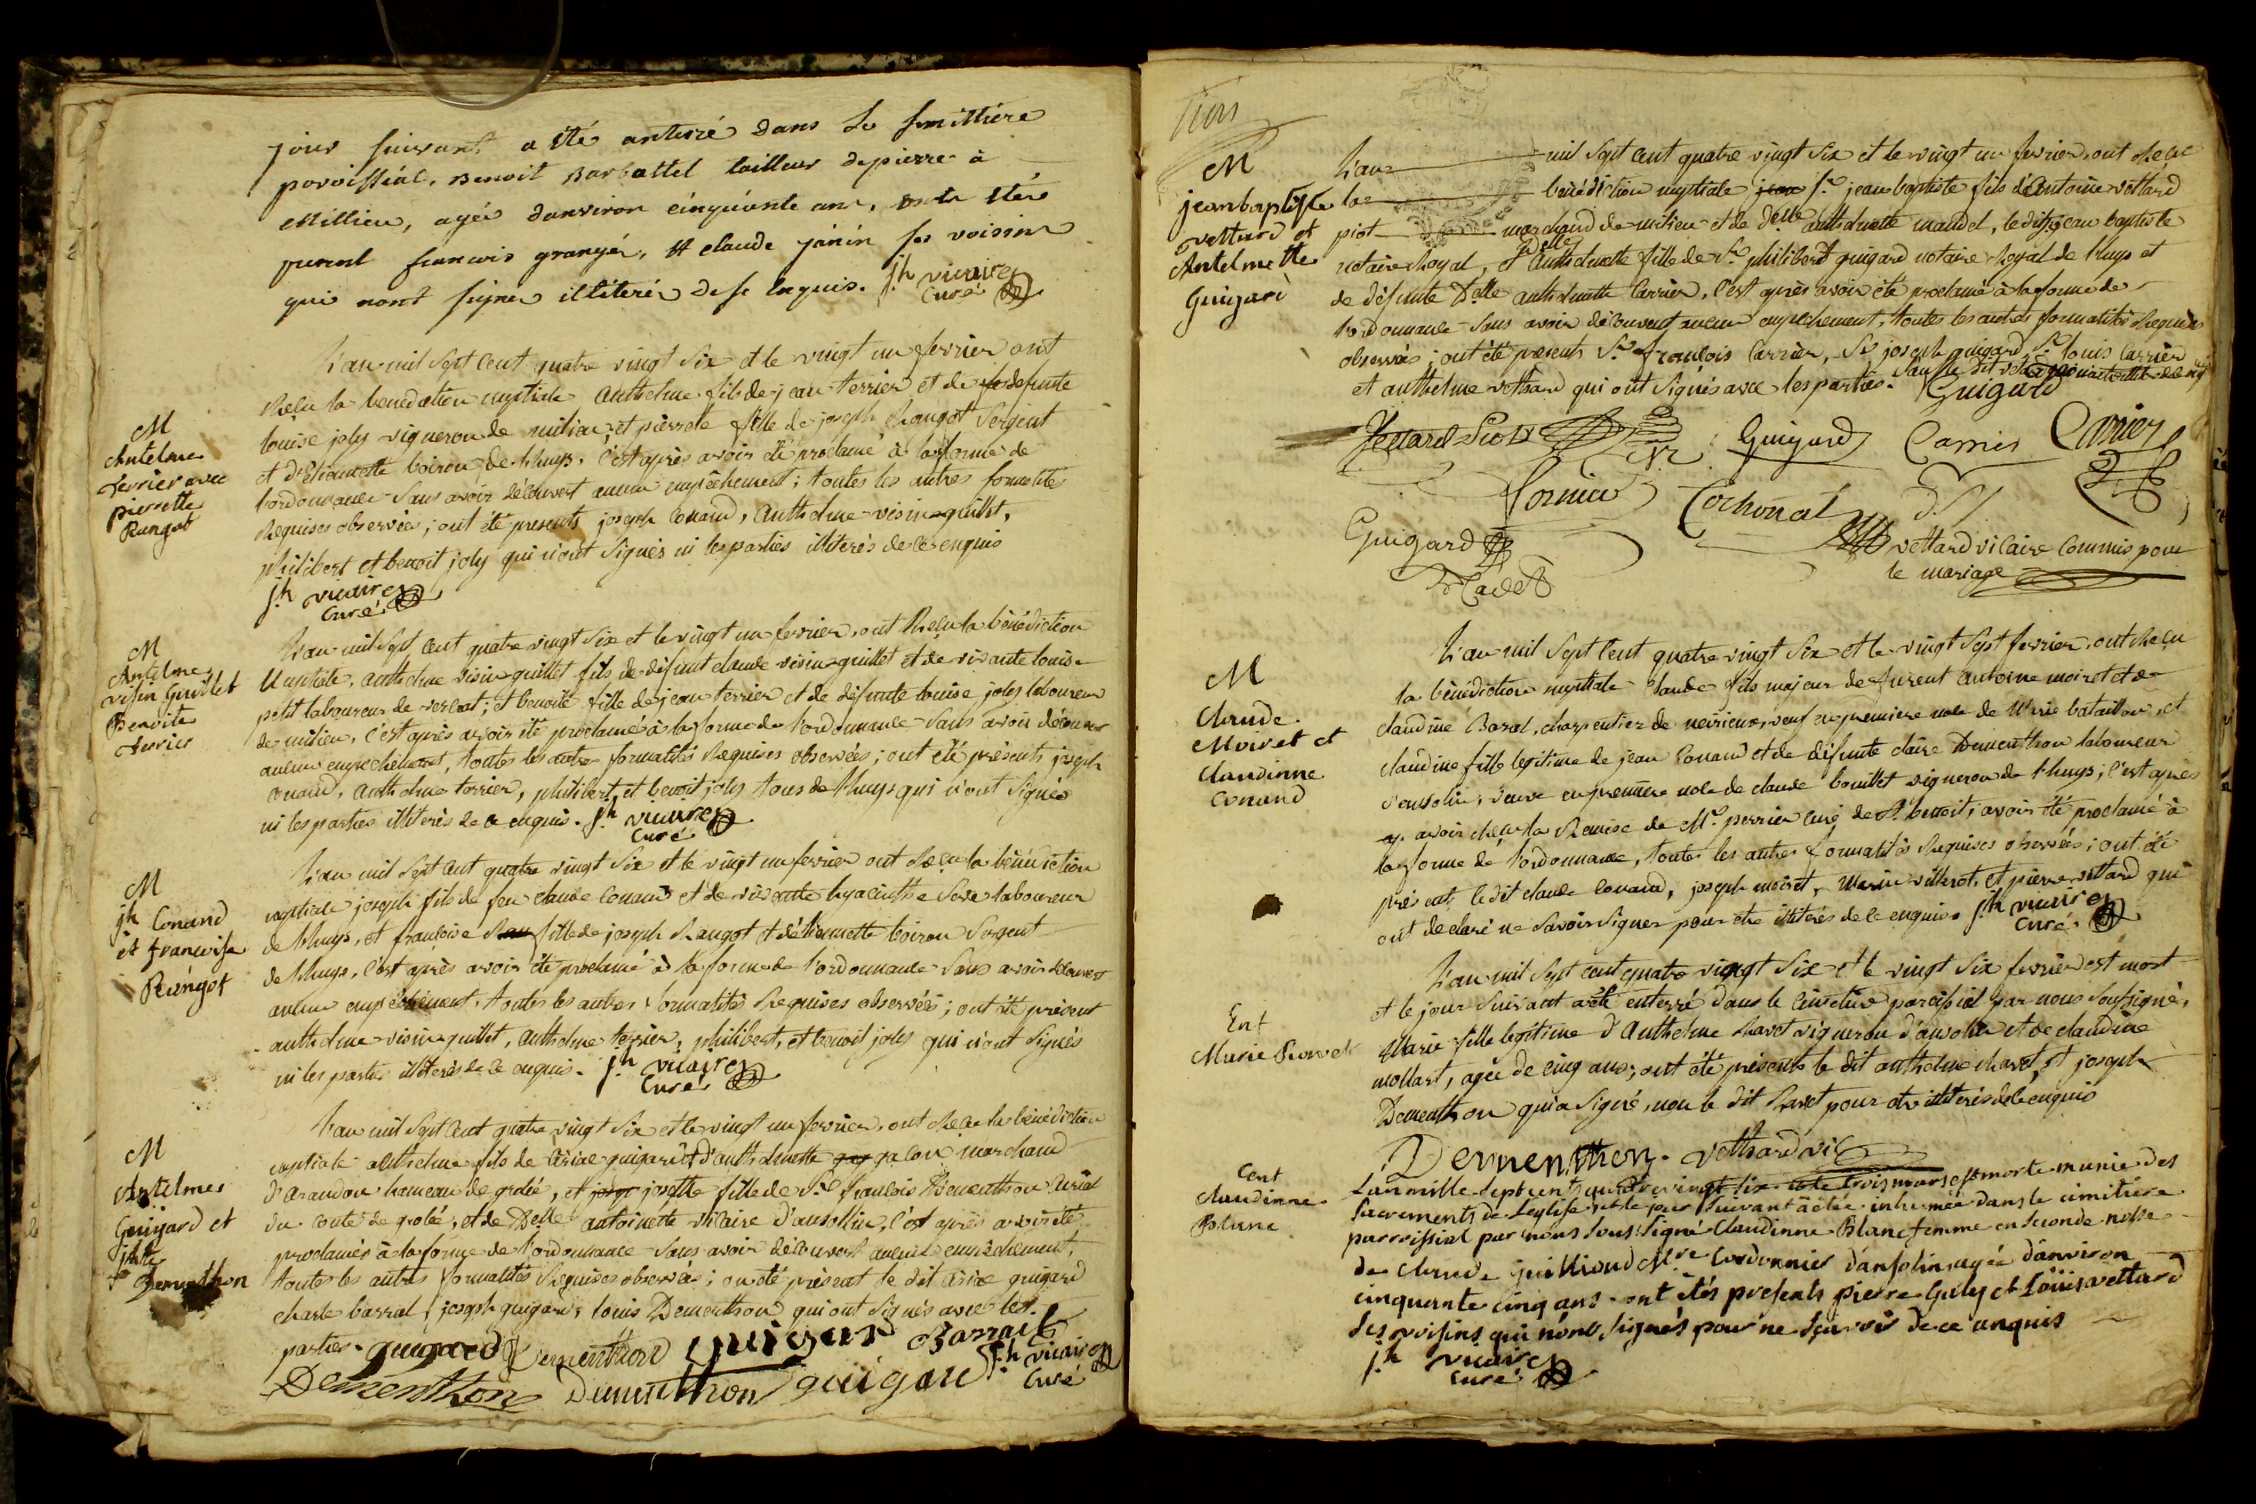 jour suivant a été anterré dans le simittiére
paroissial, Benoit Barbattel tailleur depierre à
Millieu, agée danviron cinquante ans, ont etés
present francois grangér, et claude janin ses voisins
qui nont signer illiterér de se enquis. jh vicaire
Curé
M
Antelme
Terrier avec
pierrette
Rangot
L'an mil sept cent quatre vingt six et le vingt un fevrier ont
Reçu la benediction nuptiale anthelme fils de jean terrier et de defunte
louise joly vigneron de milieu, et pierrette fille de joseph Rangot Sergent
et d'Etiennette boiron de Lhuys. c'est après avoir été proclamé à la forme de
lordonnance sans avoir découvert aucun empêchement; toutes les autres formalités
Requises observées; ont été presents joseph Conand, anthelme visin guillet,
philibert et benoit joly qui n'ont signés ni les parties illiterés de ce enquis
jh vicaire
Curé
M
Antelme
visin Guillet
Benoite
Terrier
L'an mil sept cent quatre vingt six et le vingt un fevrier, ont Reçu la bénédiction
Nuptiale, anthelme visin guillet fils de défunt claude visin guillet et de vivante louise
petit laboureur de ; et benoite fille de jean terrier et de défunte louise joly laboureur
de milieu, c'est après avoir été proclamé à la forme de l'ordonnance sans avoir découvert
aucun empechement, toutes les autres formalités Requises observées; ont été présents joseph
Conand, anthelme terrier, philibert, et benoit joly tous de Lhuys qui n'ont signés
ni les parties illiterés de ce enquis. jh vicaire
Curé
M
jh Conand
et francoise
Rengot
L'an mil sept cent quatre vingt six et le vingt un fevrier ont Reçu la bénédiction
nuptiale joseph fils de feu claude Conand et de vivante hyacinthe laboureur
de Lhuys, et francoise fille de joseph Rangot et détiennette boiron Sergent
de Lhuys, c'est après avoir été proclamé à la forme de l'ordonnance sans avoir découvert
aucun empêchement, toutes les autres formalités Requises observées; ont été présent
anthelme visin guillet, anthelme terrier, philibert, et benoit joly qui n'ont signés
ni les parties illiterés de ce enquis. jh vicaire
Curé
M
Antelme
Guigard et
jhtte
Dementhon
L'an mil sept cent quatre vingt six et le vingt un fevrier, ont Reçu la bénédiction
nuptiale anthelme fils de guigard et d'anthelmette marchand
d'arandon hameau de groslée, et josephe josette fille de Sr francois Dementhon curial
du conté de grolé, et de Delle antoinette vicaire d'ansollin, c'est après avoir été
proclamés à la forme de l'ordonnance sans avoir découvert aucun empêchement,
toutes les autres formalités Requises observées; ont été présent le dit guigard
charle barral, joseph guigard, louis Dementhon qui ont signés avec les
parties. guigard Dementhon guigar Barral
Dementhon Dumenthon guigard jh vicaire
Curé
M
jeanbaptiste
vettard et
Antelmette
Guigard
L'an mil sept cent quatre vingt six et le vingt un fevrier, ont Reçu
la bénédiction nuptiale jean Sr jean baptiste fils d'Antoine vettard
piot marchand de milieu et de Delle anthelmette mandel, le dit jean baptiste
notaire Royal, et Delle Anthelmette fille de Sr philibert guigard notaire Royal de Lhuys et
de défunte Delle anthelmette Carrier, c'est après avoir été proclamé à la forme de
lordonnance sans avoir découvert aucun empechement, toutes les autres formalités Requises
observées; ont été présents Sr francois Carrier, Sr joseph guigard, Sr louis Carrier
et anthelme vettard qui ont signés avec les parties.
Guigard
Vettard Piot Guigard Camis Carrier
Cornier Cochonat
Guigard vettard vicaire commis pour
le mariage
Cadet
M
Claude
Moiret et
Claudinne
Conand
L'an mil sept cent quatre vingt six et le vingt sept fevrier, ont Reçu
la bénédiction nuptiale Claude fils majeur de furent antoine moiret et de
claudine Baral, charpentier de, veuf en premiere nole de Marie bataillon, et
claudine fille legitime de jean Conand et de défunte claire Dementhon laboureur
d'ansolin, veuve en première nole de claude bouillet vigneron de Lhuys; c'est après
avoir Reçu la Remise de Mr perrier curé de St benoit; avoir été proclamé à
la forme de l'ordonnance, toutes les autres formalités Requises observées; ont été
présent le dit claude Conand, joseph moiret, Marin villerot, et pierre vettard qui
ont declaré ne savoir signer pour etre illiterés de ce enquis. jh vicaire
Curé
Ent
Marie Ravet
L'an mil sept cent quatre vingt six et le vingt six fevrier est mort
et le jour suivant a été enterré dans le cimetiere paroissial par nous soussigné,
Marie fille legitime d'Anthelme Ravet vigneron d'ansolin et de claudine
mollart, agée de cinq ans; ont été présents le dit anthelme Ravet, et joseph
Dementhon qui a signé, non le dit Ravet pour etre illiterés de ce enquis
Dementhon. Vettard vic
Ent
Claudinne
Blanc
Lan mille sept cents quatre vingt six et le trois mars est morte munie des
sacrements de leglise et le jour suivant à étée inhumée dans le cimitiére
parroissial par nous sous signé Claudinne Blanc femme en seconde nosse
de Claude guilliond Mre Cordonnier d'ansolin, agée d'anviron
cinquante cinq ans. ont étés presents pierre Guly et Loüis vettard
ses voisins qui n'ont signés pour ne sçavoir de ce anquis
jh vicaire
Curé